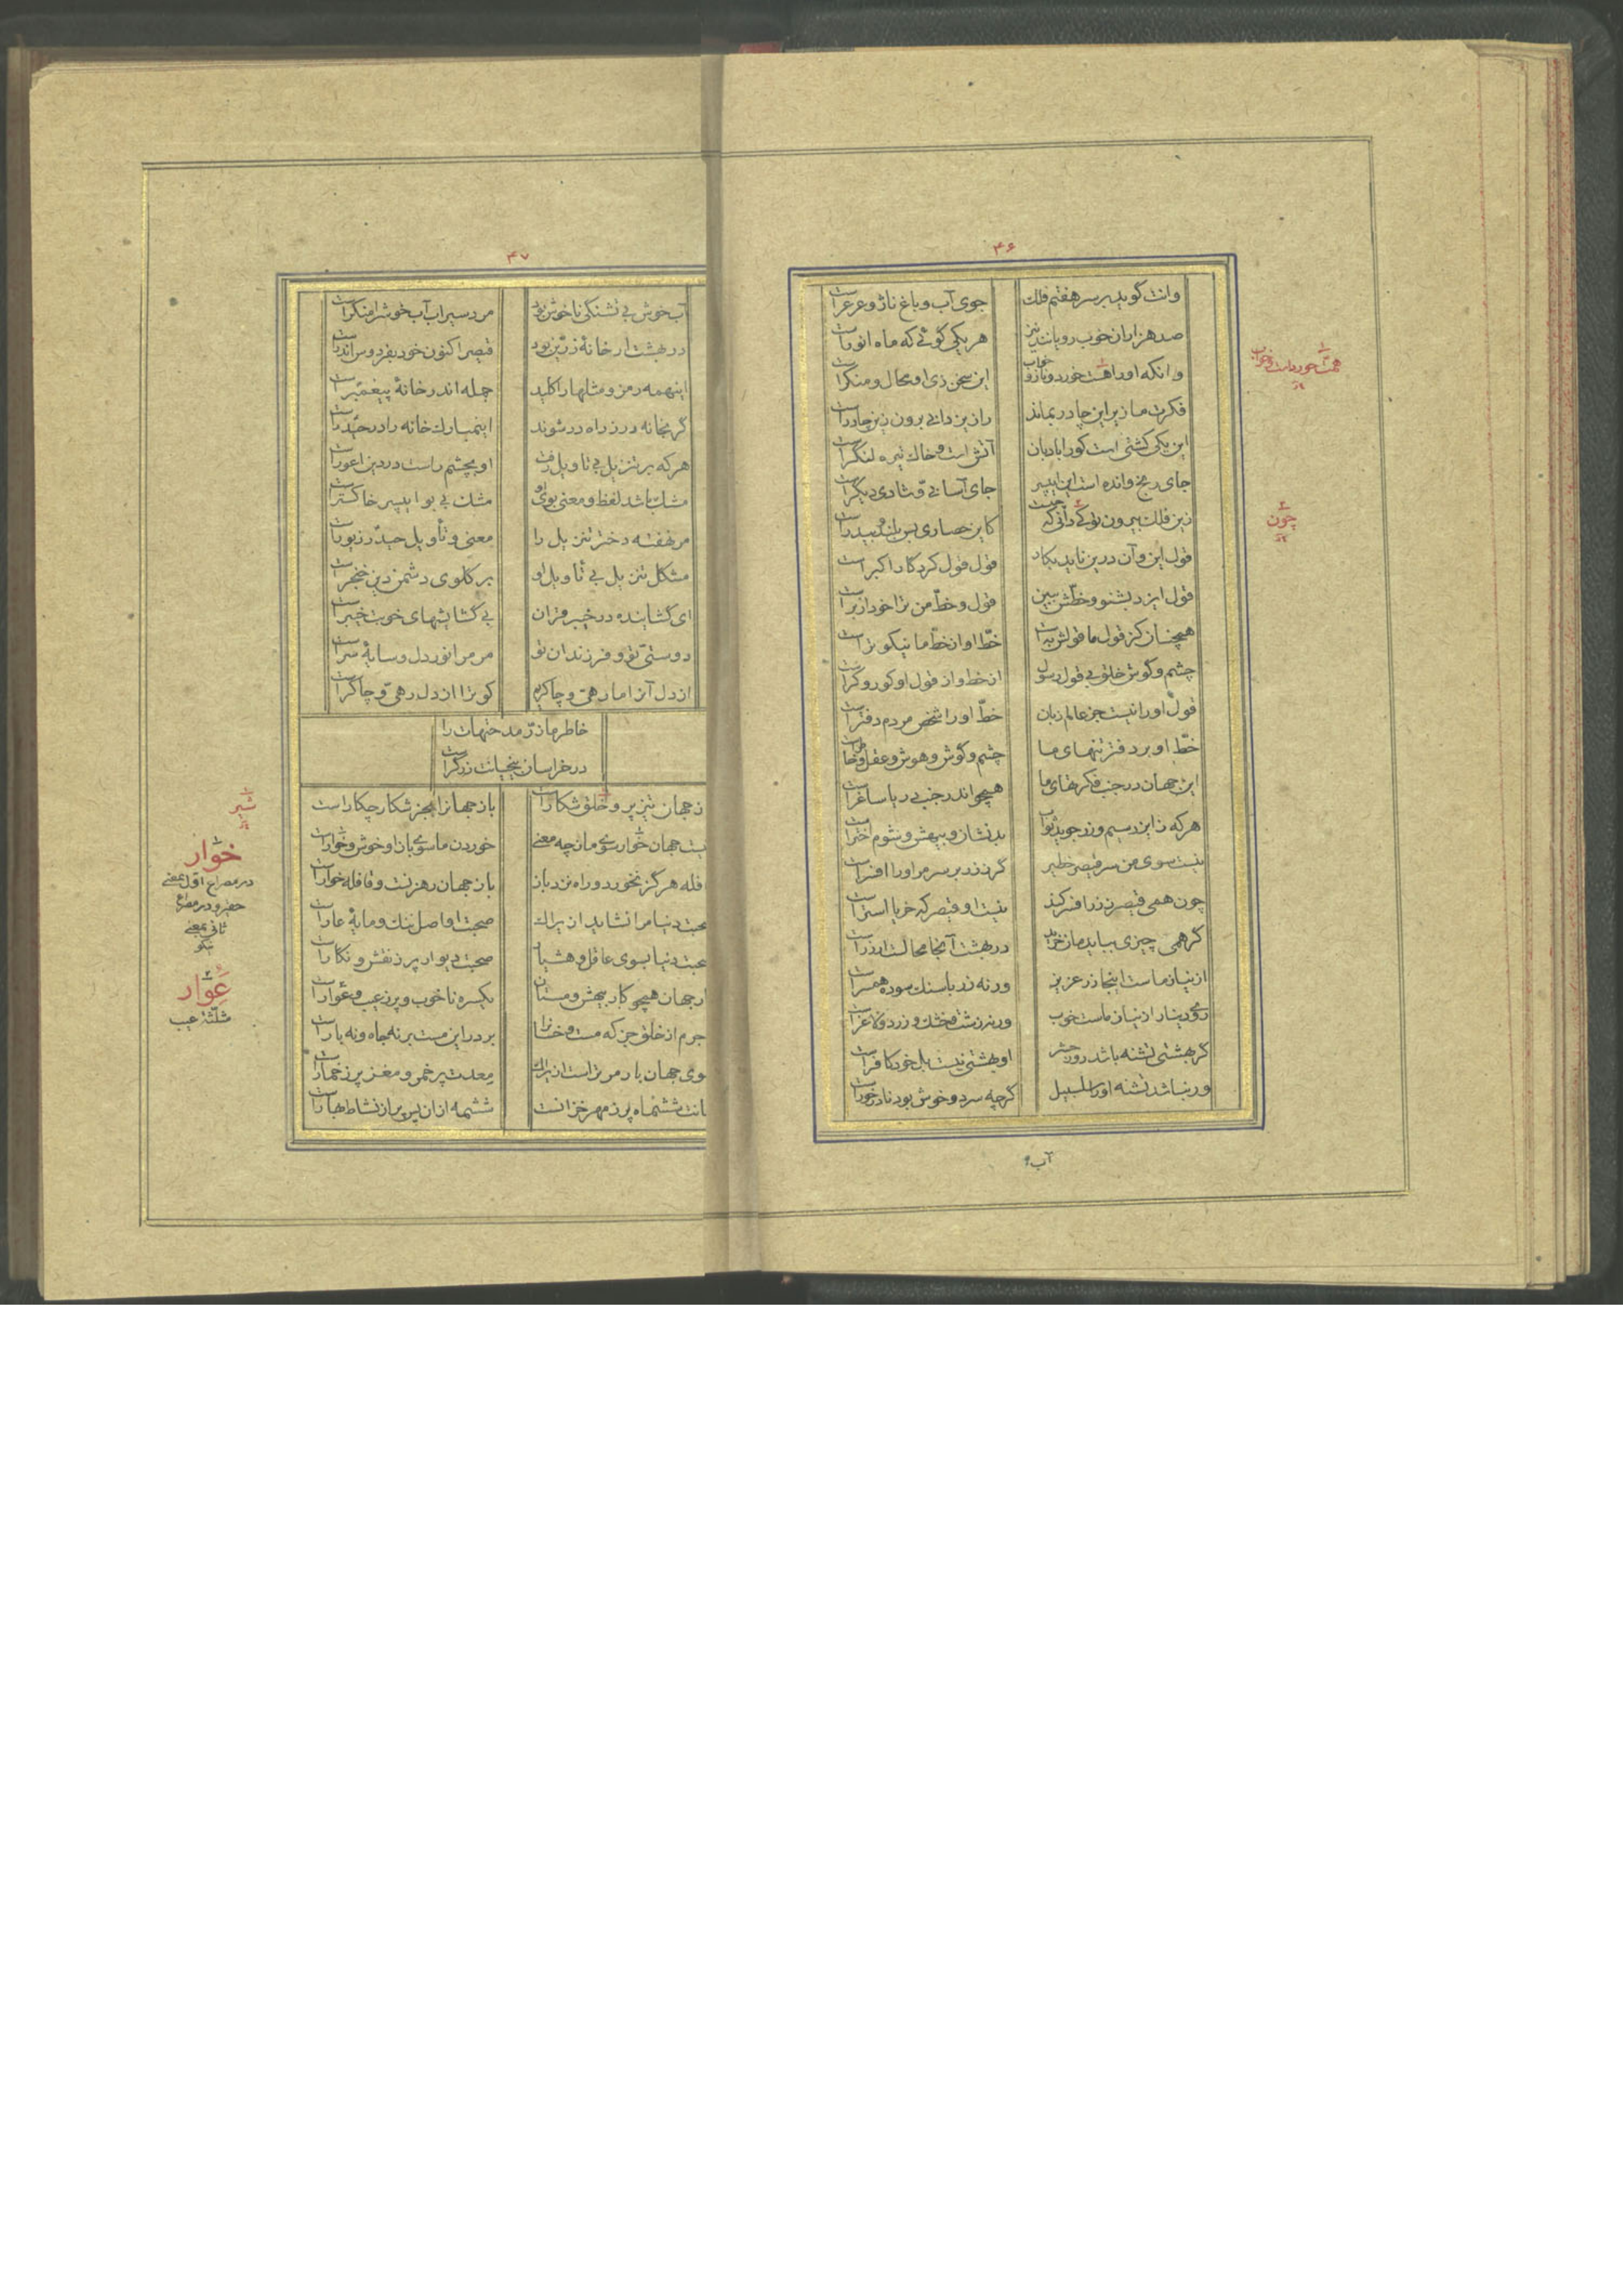 ۴۶
وانت گوید بر سر هفتم فلک جوی آب و باغ ناژ و عرعر است
صد هزاران خوب رویانند نیز هر یکی گوئی که ماه انور است
وانکه او را هست خورد و ناز و خواب این سخن زی او محال و منکر است
فکرت ما زیر این چادر بماند راز یزدانی برون زین چادر است
این یکی کشتی است کورا بادبان آتش است و خاک تیره لنگر است
جای رنج و انده است این ایپسر جای آسانی و شادی دیگر است
زین فلک بیرون توکی دانی که چیست کاین حصاری بس بلند و بیدر است
قول این و آن درین ناید بکار قول قول کردگار اکبر است
قول ایزد بشنو و خطّش ببین قول و خطّ من ترا خود ازبر است
همچنان کز قول ما قولش به است خطّ او از خطّ ما نیکوتر است
چشم و گوش خلق بی قول رسول از خط و از قول او کور و کر است
قول او را نیست جز عالم زبان خطّ او را شخص مردم دفتر است
خطّ او بر دفتر تنهای ما چشم و گوش و هوش و عقل و خاطر است
این جهان در جنب فکرتهای ما همچو اندر جنب دریا ساغر است
هر که زایزد سیم و زر جوید ثواب بد نشان و بیهش و شوم اختر است
نیست سوی من سر قیصر خطیر گر ز زر بر سر مر او را افسر است
چون همی قیصر ز زر افسر کند نیست او قیصر که خر یا استر است
گر همی چیزی بباید مان خرید در بهشت آنجا محالست ار زر است
از نیاز ماست اینجا زر عزیز ورنه زر با سنک سوده همسر است
روی دینار از نیاز ماست خوب ورنه زشت و خشک و زرد و لاغر است
گر بهشتی تشنه باشد روز حشر او بهشتی نیست بل خود کافر است
ور نباشد تشنه او را سلسبیل گرچه سرد و خوش بود نادرخور است
آب
چون
۴۷
آب خوش بی تشنگی ناخوش بود مرد سیراب آب خوش را منکر است
در بهشت ار خانهٔ زرّین بود قیصر اکنون خود بفردوس اندر است
اینهمه رمز و مثلها را کلید جمله اندر خانهٔ پیغمبر است
گر بخانه در ز راه در شوند این مبارک خانه را در حیدر است
هر که بر تنزیل بی تاویل رفت او بچشم راست در دین اعور است
مشک باشد لفظ و معنی بوی او مشک بی بو ایپسر خاکستر است
مر نهفته دختر تنزیل را معنی و تأویل حیدر زیور است
مشکل تنزیل بی تأویل او بر گلوی دشمن دین خنجر است
ای گشاینده در خیبر قران بی گشایشهای خوبت خیبر است
دوستی تو و فرزندان تو مر مرا نور دل و سایهٔ سر است
از دل آنرا ما رهی و چاکریم کو ترا از دل رهی و چاکر است
خاطر ما ز زرّ مدحتهات را
در خراسان بیخیانت زرگر است
ز جهان تیز پر و خلق شکار است باز جهانرا بجز شکار چکار است
یست جهان خوار سوی ما ز چه معنی خوردن ما سوی باز او خوش و خوار است
فله هرگز نخورد و راه نزد باز باز جهان رهزنست و قافله خوار است
حبت دنیا مرا نشاید ازیراک صحبت او اصل ننک و مایهٔ عار است
حبت دنیا بسوی عاقل و هشیار صحبت دیوار پر ز نقش و نگار است
ار جهان همچو کار بیهش و مستان یکسره ناخوب و پر ز عیب و عوار است
جرم از خلق جز که مست و خر است بر در این مست بر نه جاه و نه بار است
وی جهان بار مر تراست ازیراک معدت پر خمر و مغز پر ز خمار است
انت ششماه پر ز مهر خزانست ششمه از آن پس پر از نشاط بهار است
شیر
خوار
در مصراع اوّل بمعنی
حقیر و در مصراع
ثانی بمعنی
نیکو
عوار
مثلّثة عیب